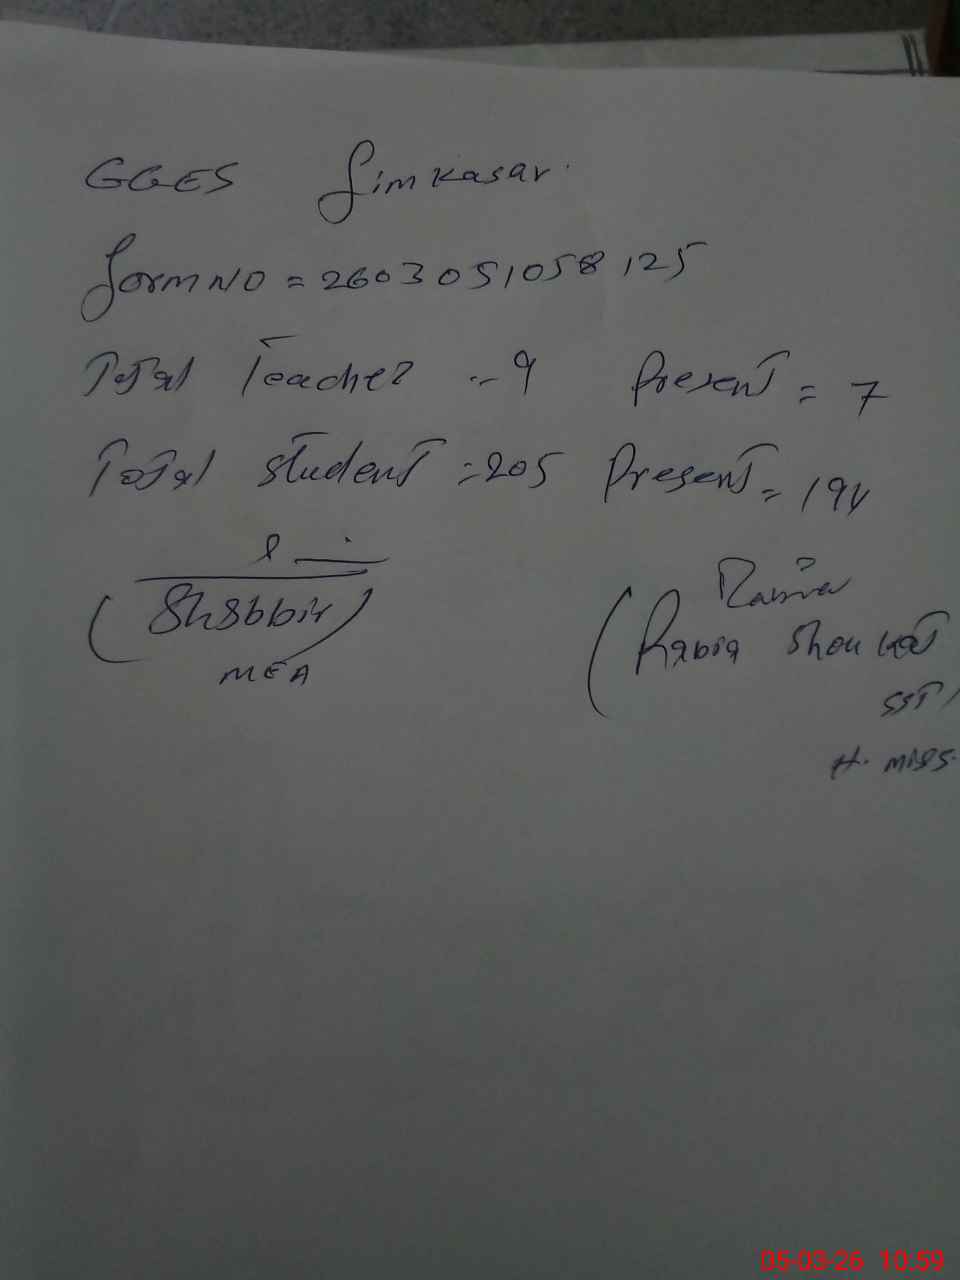 GGES Jimkasar.
form NO = 2603051058125
Total Teacher = 9 Present = 7
Total student = 205 Present = 194
Rabia
(Shabbir) (Rabia Shoukat
MEA SST/
H. miss.
05-03-26 10:59